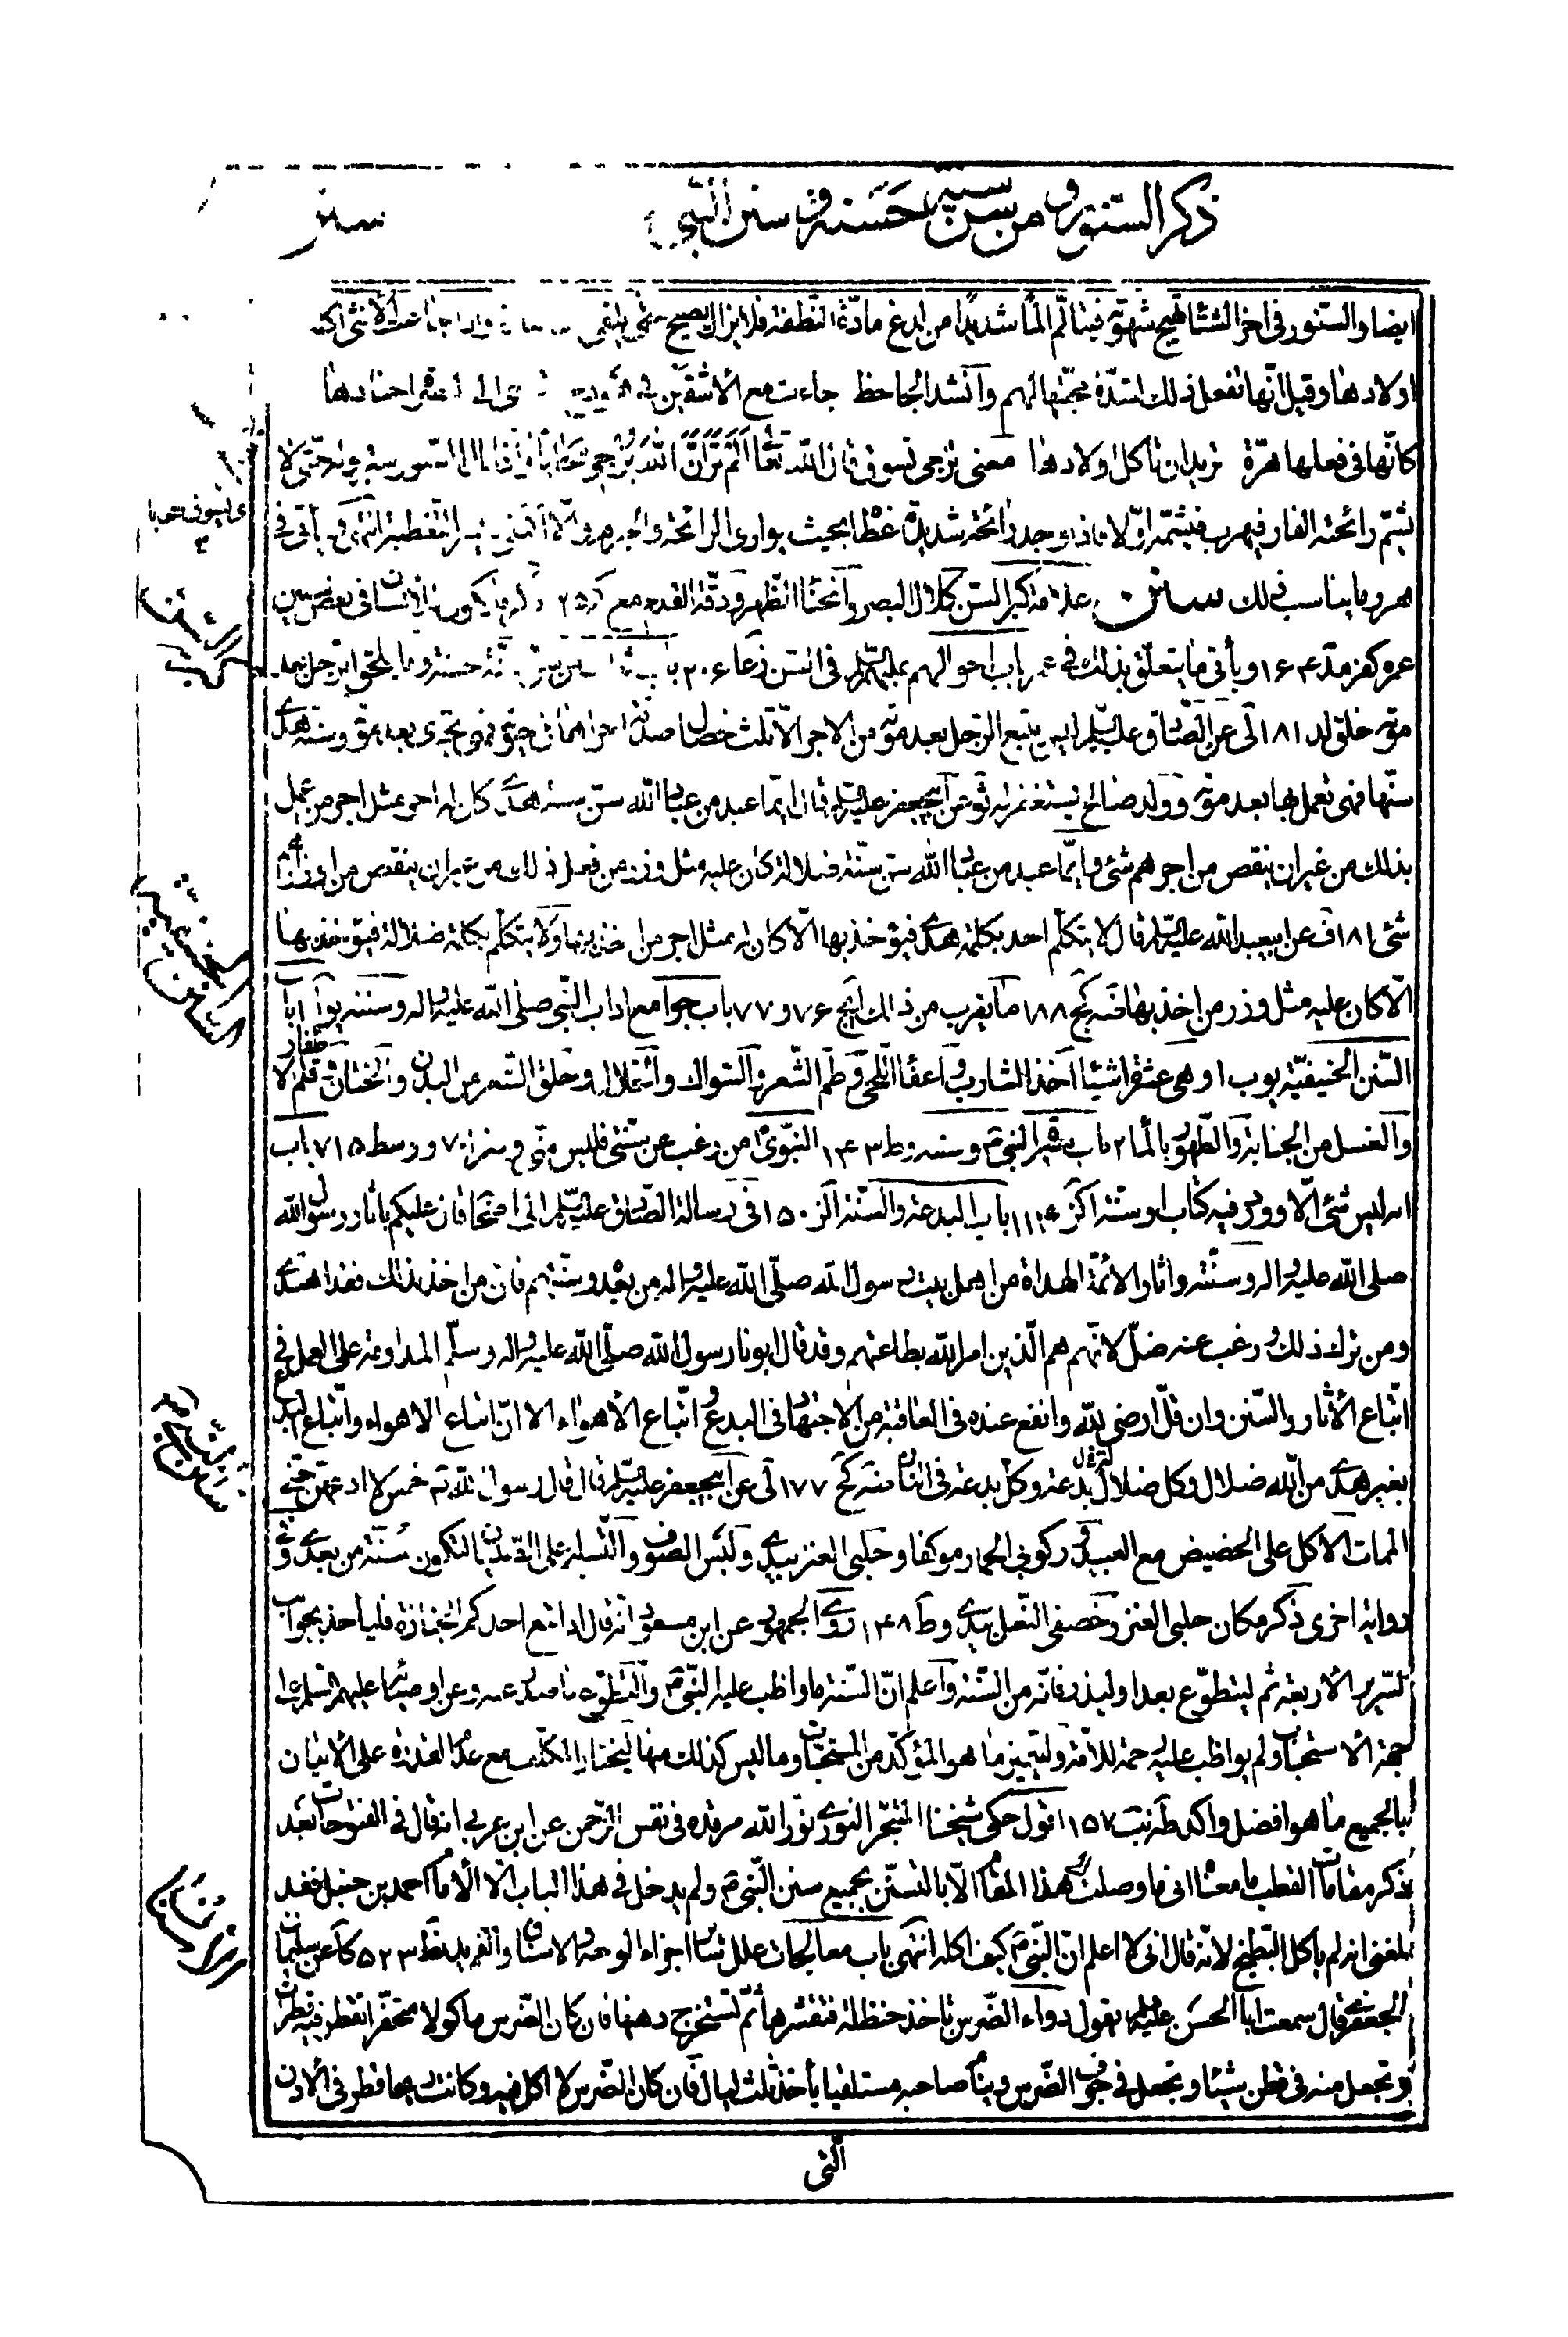 ذكر السّنور ومن سنّ سنّة حسنة وسنن النّبي
سنن
ايضا والسّنور فى اخر الشتاء تهيج شهوته فيتألّم المًا شديدًا من لدغ مادّة النّطفة فلا يزال يصيح حتى يلقى الأنثى اكلت
اولادها وقيل انّها تفعل ذلك لشدّة محبّتها لهم وأنشد الجاحظ جاءت مع الأشقين فى هودج تزجى الى اجنادها
كأنّها فى فعلها هرّة تريد ان تأكل اولادها معنى تزجى تسوق قال الله تعالى ألم تر أنّ الله يزجى سحابا السّنور ستر بوله حتّى لا
يشمّ رائحته الفار فيهرب فيشمّه اوّلا فاذا وجد رائحته شديدة غطّاه بحيث يوارى الرائحة والجرم
هرر ما يناسب ذلك سنن علامة كبر السّن كلال البصر وانحناء الظّهر ورقّة القدم مع كد ٢٥
عمره كفر مد ١٦٤ ويأتى ما يتعلّق بذلك فى عمر باب احوالهم عليهم السلام فى السّن زعا ٢٠٦ باب حسنة وما يلحق الرّجل بعد
موته خلق لد ١٨١ لى عن الصّادق عليه السّلم ليس يتبع الرّجل بعد موته من الاجر الّا ثلث خصال صدقة اجراها فى حيوته فهى تجرى بعد موته وسنّة هدى
سنّها فهى تعمل بها بعد موته وولد صالح يستغفر له ثو عن أبيجعفر عليه السلم قال ايّما عبد من عباد الله سنّ سنّة هدى كان له اجر مثل اجر من عمل
بذلك من غير ان ينقص من اجورهم شئ وايّما عبد من عباد الله سنّ سنّة ضلالة كان عليه مثل وزر من فعل ذلك من غير ان ينقص من اوزارهم
شئ ١٨١ ف عن ابيعبد الله عليه السلم قال لا يتكلّم احد بكلمة هدى فيؤخذ بها الّا كان له مثل اجر من اخذ بها ولا يتكلّم بكلمة ضلالة فيؤخذ بها
الّا كان عليه مثل وزر من اخذ بها فتنه كج ١٨٨ ما يقرب من ذلك ايج ٧٦ و ٧٧ باب جوامع اداب النّبى صلى الله عليه واله وسننه يو ا باب
السّنن الحنيفيّة يوب ١ وهى عشرة اشياء اخذ الشارب وأعفاء اللّحى وطمّ الشّعر والسّواك والخلال وحلق الشّعر من البدن والختان وقلم الاظفار
والغسل من الجنابة والطّهور بالماء ٢ باب سير النّبى ص وسننه وط ١٤٣ النّبوى من رغب عن سنّتى فليس منّى ٧٠ ووسط ٧١٥ باب
انه ليس شئ الّا وورد فيه كتاب او سنّة اكز ١١٤ باب البدعة والسّنة اكز ١٥٠ فى رسالة الصّادق عليه السّلم الى اصحابه قال عليكم باثار رسول الله
صلى الله عليه واله وسنّته واثار الأئمّة الهداة من اهل بيت رسول الله صلّى الله عليه واله من بعده وسنّتهم فان من اخذ بذلك فقد اهتدى
ومن ترك ذلك ورغب عنه ضلّ لانّهم هم الّذين امر الله بطاعتهم وقد قال ابونا رسول الله صلّى الله عليه واله وسلّم المداومة على العمل فى
اتّباع الأثار والسّنن وان قلّ ارضى لله وانفع عنده فى العاقبة من الاجتهاد فى البدع واتّباع الأهواء الا انّ اتباع الاهواء واتّباع البدع
بغير هدى من الله ضلال وكل ضلال بدعة وكلّ بدعة فى النار منه كج ١٧٧ لى عن أبيجعفر عليه السّلم قال قال رسول الله ص خمس لا ادعهن حتى
الممات الاكل على الحضيض مع العبيد وركوبى الحمار موكفا وحلبى العنز بيدى ولبس الصّوف والتّسليم على الصّبيان لتكون سُنّة من بعدى وفى
رواية اخرى ذكر مكان حلبى العنز وخصفى النّعل بيدى وط ١٤٨ روى الجمهور عن ابن مسعود انّه قال اذا تبع احدكم الجنازة فليأخذ بجوانب
السّرير الأربعة ثم ليتطوّع بعد او ليذر فانّه من السّنة واعلم انّ السّنة ما واظب عليه النّبى ص والتطوّع ما صدر عنه وعن اوصيائه عليهم السّلم على
جهة الاستحباب ولم يواظب عليه رحمة للأمّة وليتميّز ما هو المؤكّد من المستحبّات وما ليس كذلك منها ليختار المكلّف مع عدم القدرة على الأتيان
بالجميع ما هو افضل واكد طه نب ١٥٧ اقول حكى شيخنا المتبحّر النورى نوّر الله مرقده فى نفس الرّحمن عن ابن عربى انه قال فى الفتوحات بعد
ذكر مقامات القطب ما معناه انى ما وصلت الى هذا المقام الّا بالتسنّن بجميع سنن النّبى ص ولم يدخل فى هذا الباب الّا الأمام احمد بن حنبل فقد
بلغنى انه لم يأكل البطّيخ لانّه قال انى لا اعلم انّ النّبى ص كيف اكله انتهى باب معالجات علل ساير اجزاء الوجه والاسنان والفم يد نط ٥٢٣ كا عن سليمان
الجعفرى قال سمعت ابا الحسن عليه السلم يقول دواء الضّرس تاخذ حنظلة فتقشّرها ثمّ تستخرج دهنها فان كان الضّرس مأكولا متحفّرا تقطر فيه قطرات
وتجعل منه فى قطن شيئا وتجعل فى جوف الضّرس وينام صاحبه مستلقيا يأخذ ثلث ليال فان كان الضّرس لا اكل فيه وكانت ريحا قطر فى الأذن
الّتى